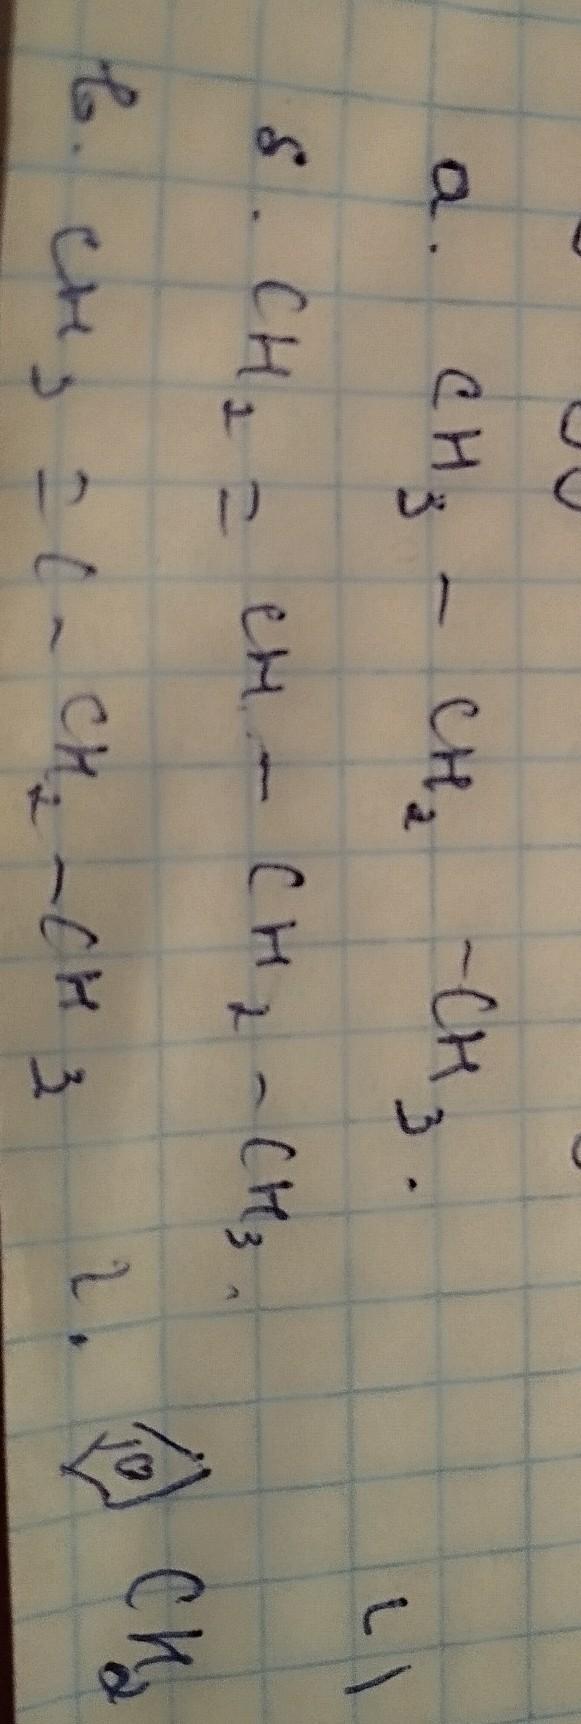 а. CH3 - CH2 - CH3.
б. CH2 = CH - CH2 - CH3.
в. CH3 = C - CH2 - CH3 г. CH2